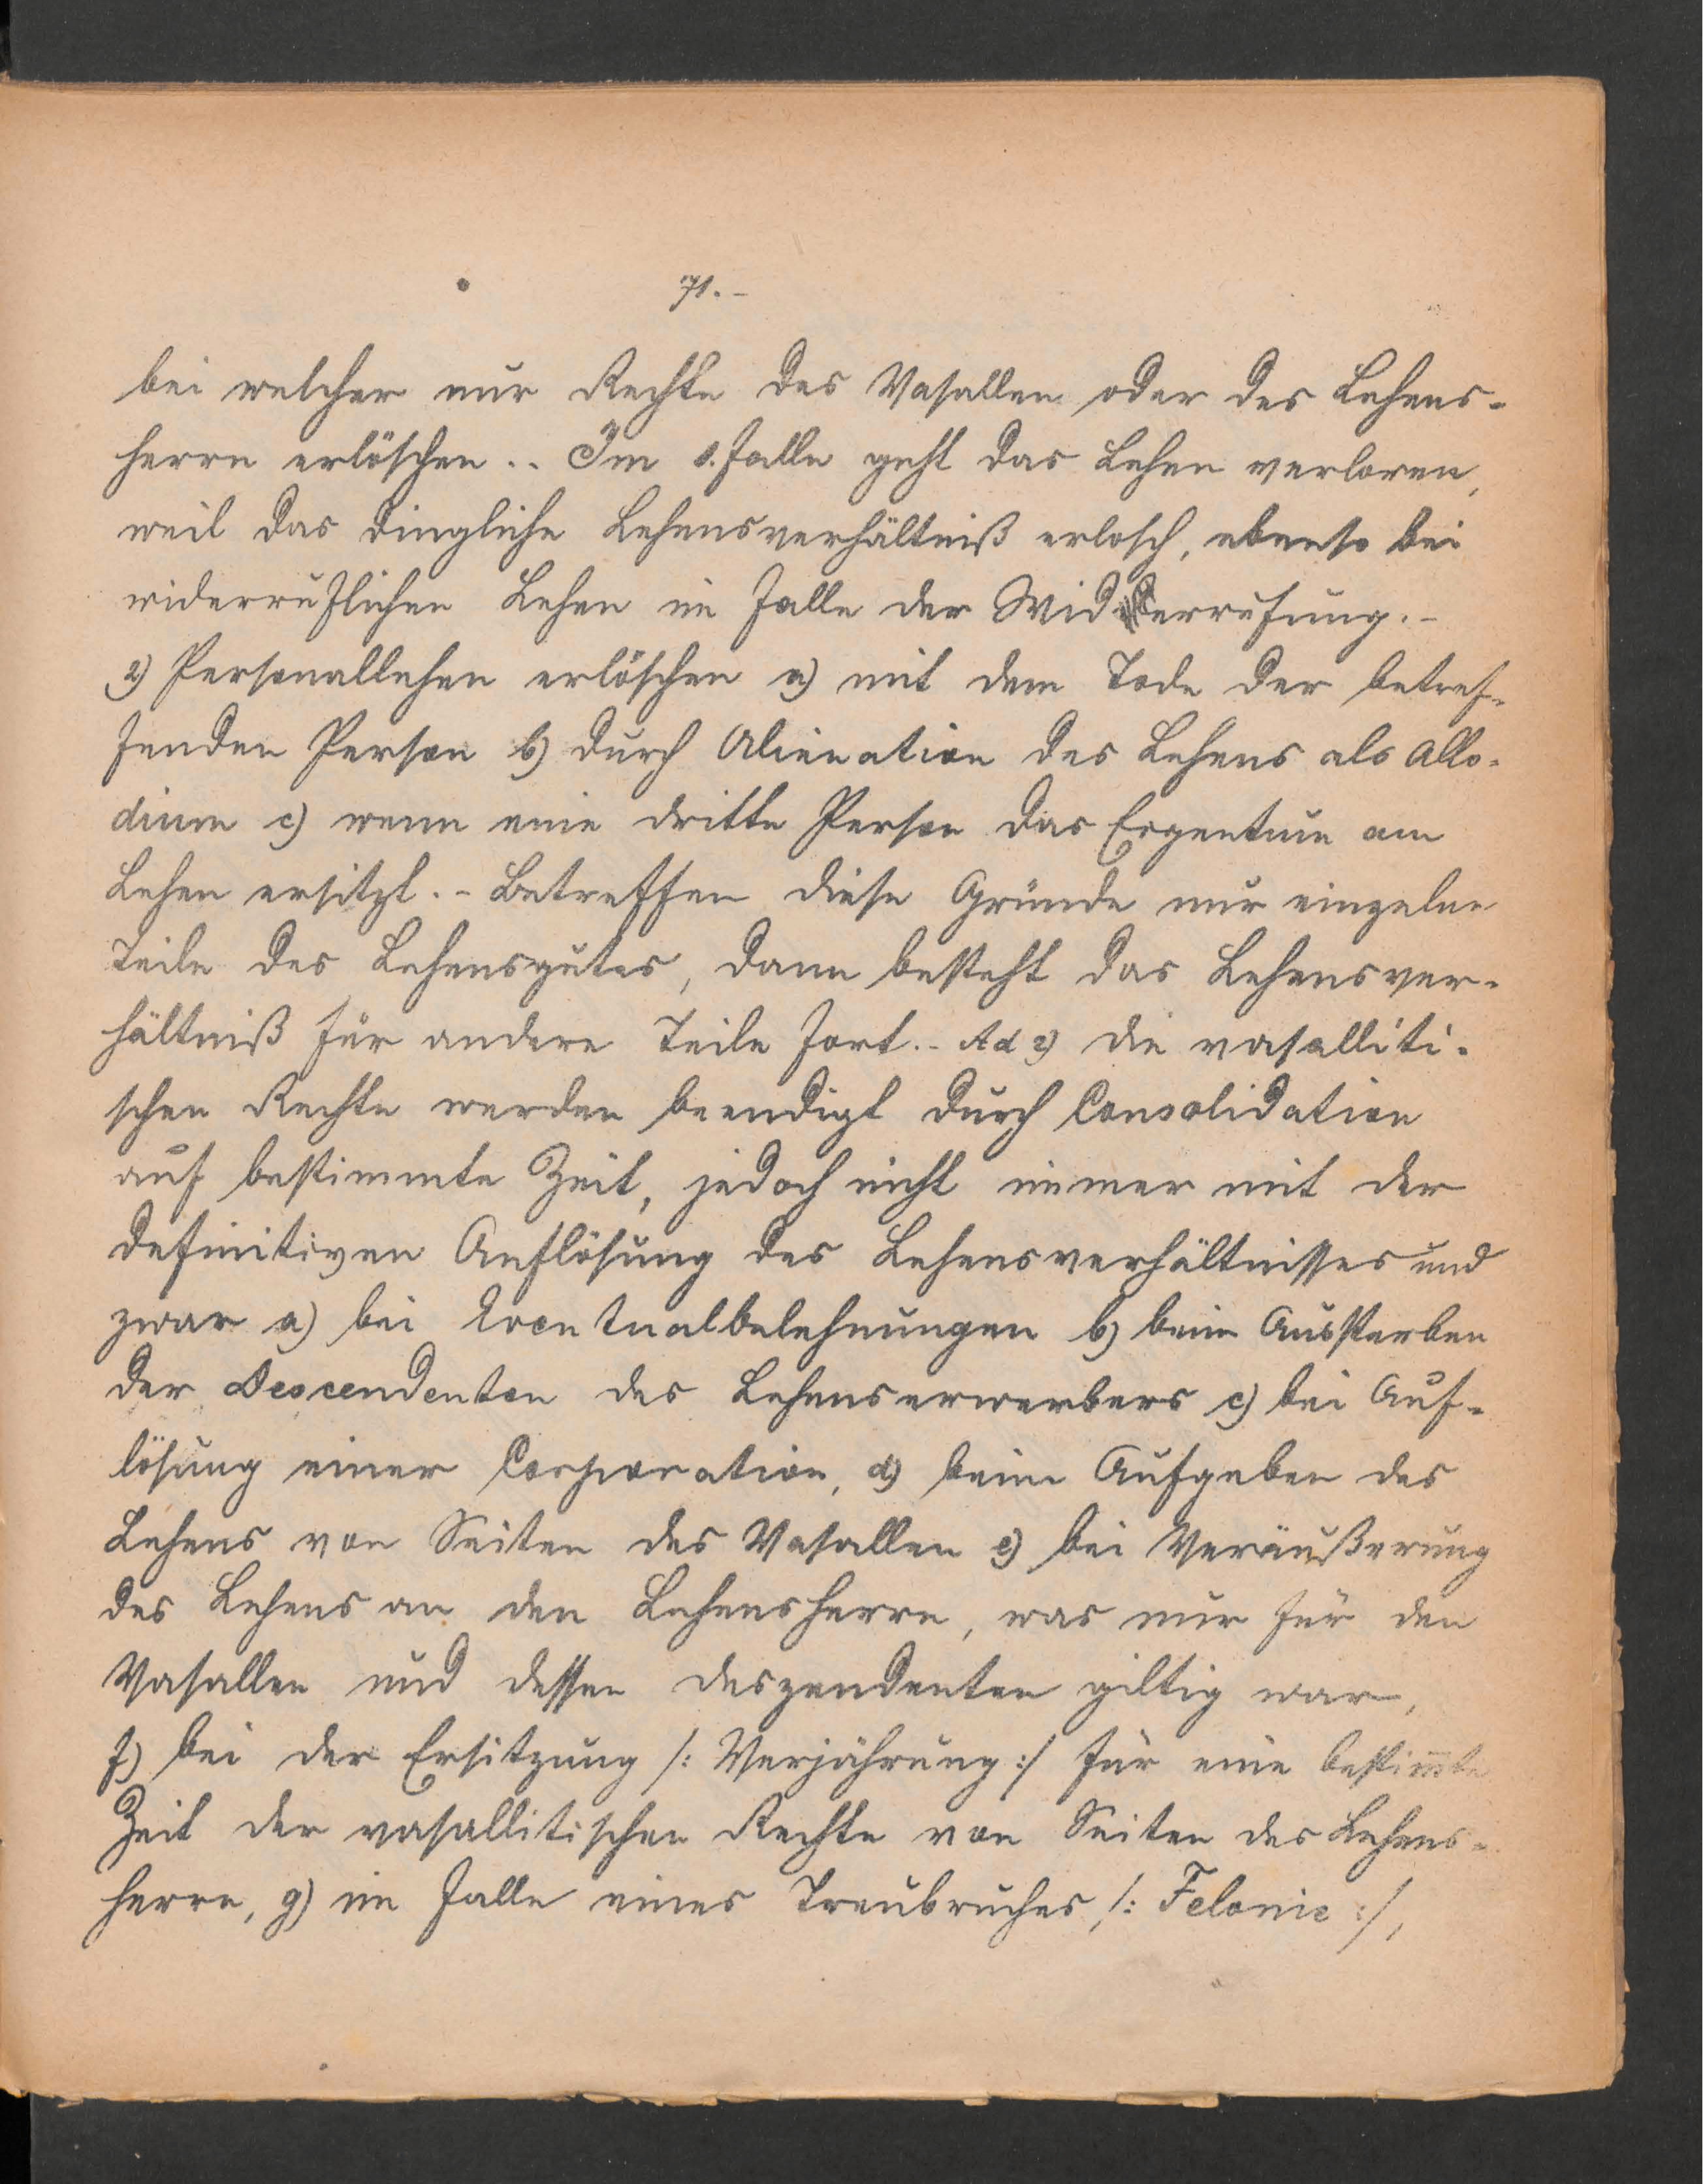 71.-
bei welcher nur Rechte des Vasallen oder des Lehens-
herrn erlöschen.. Im 1. Falle geht das Lehen verloren,
weil das dingliche Lehensverhältniß erlosch, ebenso bei
widerruflichen Lehen im Falle der Widerrufung.-
2) Personallehen erlöschen a) mit dem Tode der betref-
fenden Person b) durch Alienation des Lehens als Allo-
dium c) wenn eine dritte Person das Eigentum am
Lehen ersitzt.- Betreffen diese Gründe nur einzelne
Teile des Lehensgutes, dann besteht das Lehensver-
hältniß für andere Teile fort.- Ad 2) die vasalliti-
schen Rechte werden beendigt durch Consolidation
auf bestimmte Zeit, jedoch nicht immer mit der
definitiven Auflösung des Lehensverhältnisses und
zwar a) bei Eventualbelehnungen b) beim Aussterben
der Descendenten des Lehenserwerbers c) bei Auf-
lösung einer Corporation, d) beim Aufgeben des
Lehens von Seiten des Vasallen e) bei Veräußerung
des Lehens an den Lehensherrn, was nur für den
Vasallen und dessen Deszendenten giltig war,
f) bei der Ersitzung /: Verjährung :/ für eine bestim̄te
Zeit der vasallitischen Rechte von Seiten des Lehens-
herrn, g) im Falle eines Treubruches /: Felonie :/,